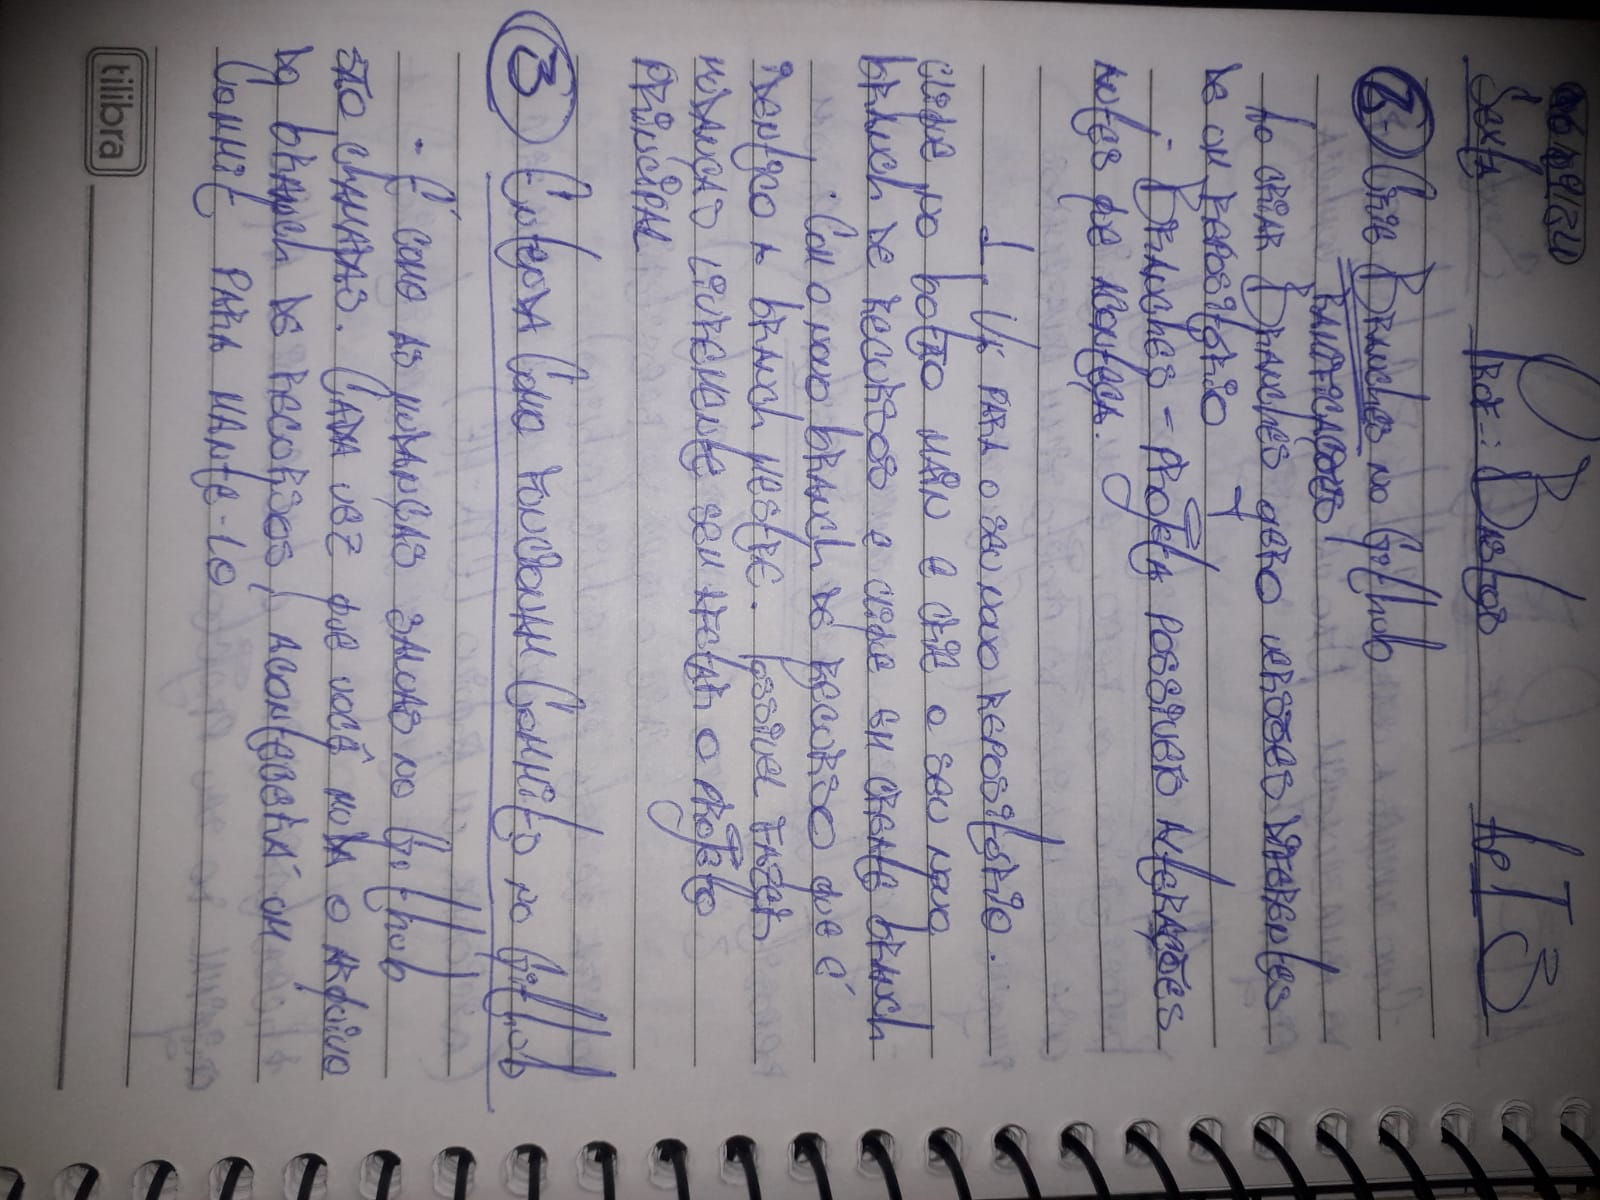 06/09/24
Sexta Prof.: Bastos ApI 3
2- Crie Branches no Github
RAMIFICAÇÕES
Ao criar Branches gero versões diferentes
de um repositório
- Branches - projeta possíveis alterações
antes que aconteça.
1. Vá para o seu novo repositório.
clique no botão main e crie o seu novo
branch de recursos e clique em create branch
. Com o novo branch de recurso que é
identico a branch mestre. Possivel fazer
mudanças livremente sem afetar o projeto
principal
3 Entenda Como funcionam Commits no Github
- É como as mudanças salvas no Github
são chamadas. Cada vez que você muda o arquivo
do branch de recursos, acontecerá um
Commit para mante-lo
tilibra